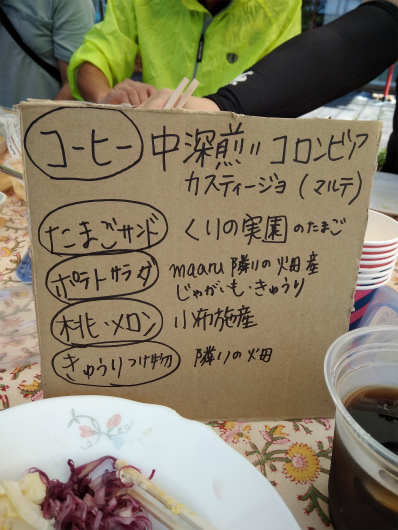 コーヒー 中深煎り コロンビア
カスティージョ (マルテ)
たまごサンド くりの実園のたまご
ポテトサラダ maaru隣りの畑産
じゃがいも・きゅうり
桃・メロン 小布施産
きゅうりつけ物 隣りの畑